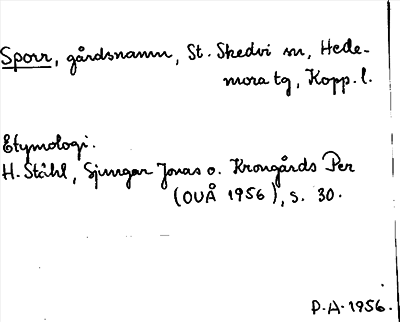 Sporr, gårdsnamn, St. Skedvi sn, Hede-
mora tg, Kopp. l.
Etymologi.
H. Ståhl, Sjungar Jonas o. Krongårds Per
(OUÅ 1956), s. 30.
P.A. 1956.